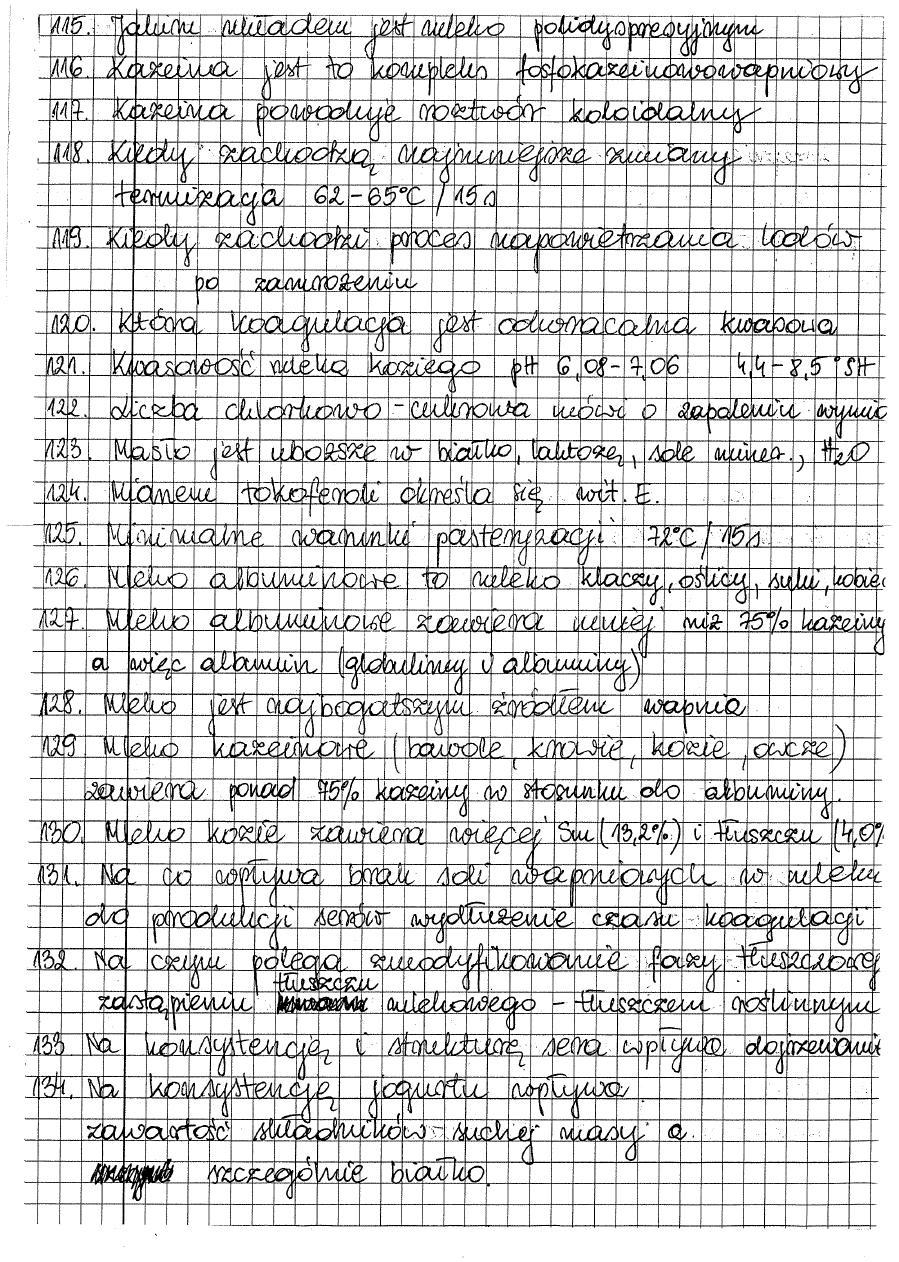 115. Jakim układem jest mleko polidyspresyjnym
116. Kazeina jest to kompleks fosfokazeinowowapniowy
117. Kazeina powoduje roztwór koloidalny
118. Kiedy zachodzą najmniejsze zmiany
termizacja 62-65°C/15s
119. Kiedy zachodzi proces napowietrzania lodów
po zamrożeniu
120. Która koagulacja jest odwracalna kwasowa
121. Kwasowość mleka koziego pH 6,08-7,06 4,4-8,5°SH
122. Liczba chlorkowo-cukrowa mówi o zapaleniu wymio
123. Masło jest uboższe w białko, laktozę, sole miner., H2O
124. Mianem tokoferoli określa się wit. E.
125. Minimalne warunki pasteryzacji 72°C/15s
126. Mleko albuminowe to mleko klaczy, oślicy, suki, kobiec
127. Mleko albuminowe zawiera mniej niż 75% kazeiny
a więc albumin (globuliny i albuminy)
128. Mleko jest najbogatszym źródłem wapnia
129 Mleko kazeinowe (bawole, krowie, kozie, owcze)
zawiera ponad 75% kazeiny w stosunku do albuminy.
130. Mleko kozie zawiera więcej Sm (13,2%) i tłuszczu (4,0%
131. Na co wpływa brak soli wapniowych w mleku
do produkcji serów wydłużenie czasu koagulacji
132. Na czym polega zmodyfikowanie fazy tłuszczowej
zastąpieniu tłuszczu mlekowego - tłuszczem roślinnym
133 Na konsystencję i strukturę sera wpływa dojrzewanie
134. Na konsystencję jogurtu wpływa
zawartość składników suchej masy a
szczególnie białko.